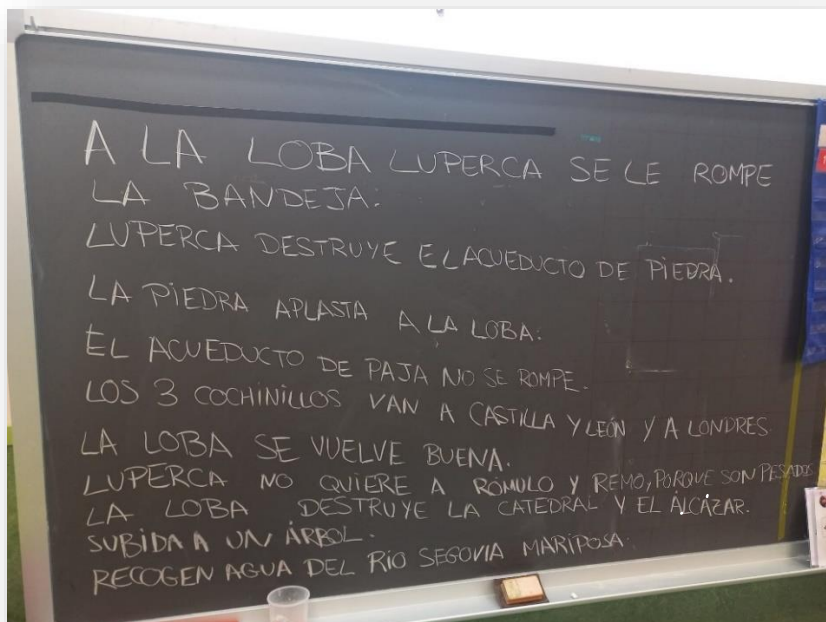 A LA LOBA LUPERCA SE LE ROMPE
LA BANDEJA.
LUPERCA DESTRUYE EL ACUEDUCTO DE PIEDRA.
LA PIEDRA APLASTA A LA LOBA.
EL ACUEDUCTO DE PAJA NO SE ROMPE.
LOS 3 COCHINILLOS VAN A CASTILLA Y LEÓN Y A LONDRES
LA LOBA SE VUELVE BUENA.
LUPERCA NO QUIERE A RÓMULO Y REMO, PORQUE SON PESADOS
LA LOBA DESTRUYE LA CATEDRAL Y EL ALCÁZAR.
SUBIDA A UN ÁRBOL.
RECOGEN AGUA DEL RÍO SEGOVIA MARIPOSA.